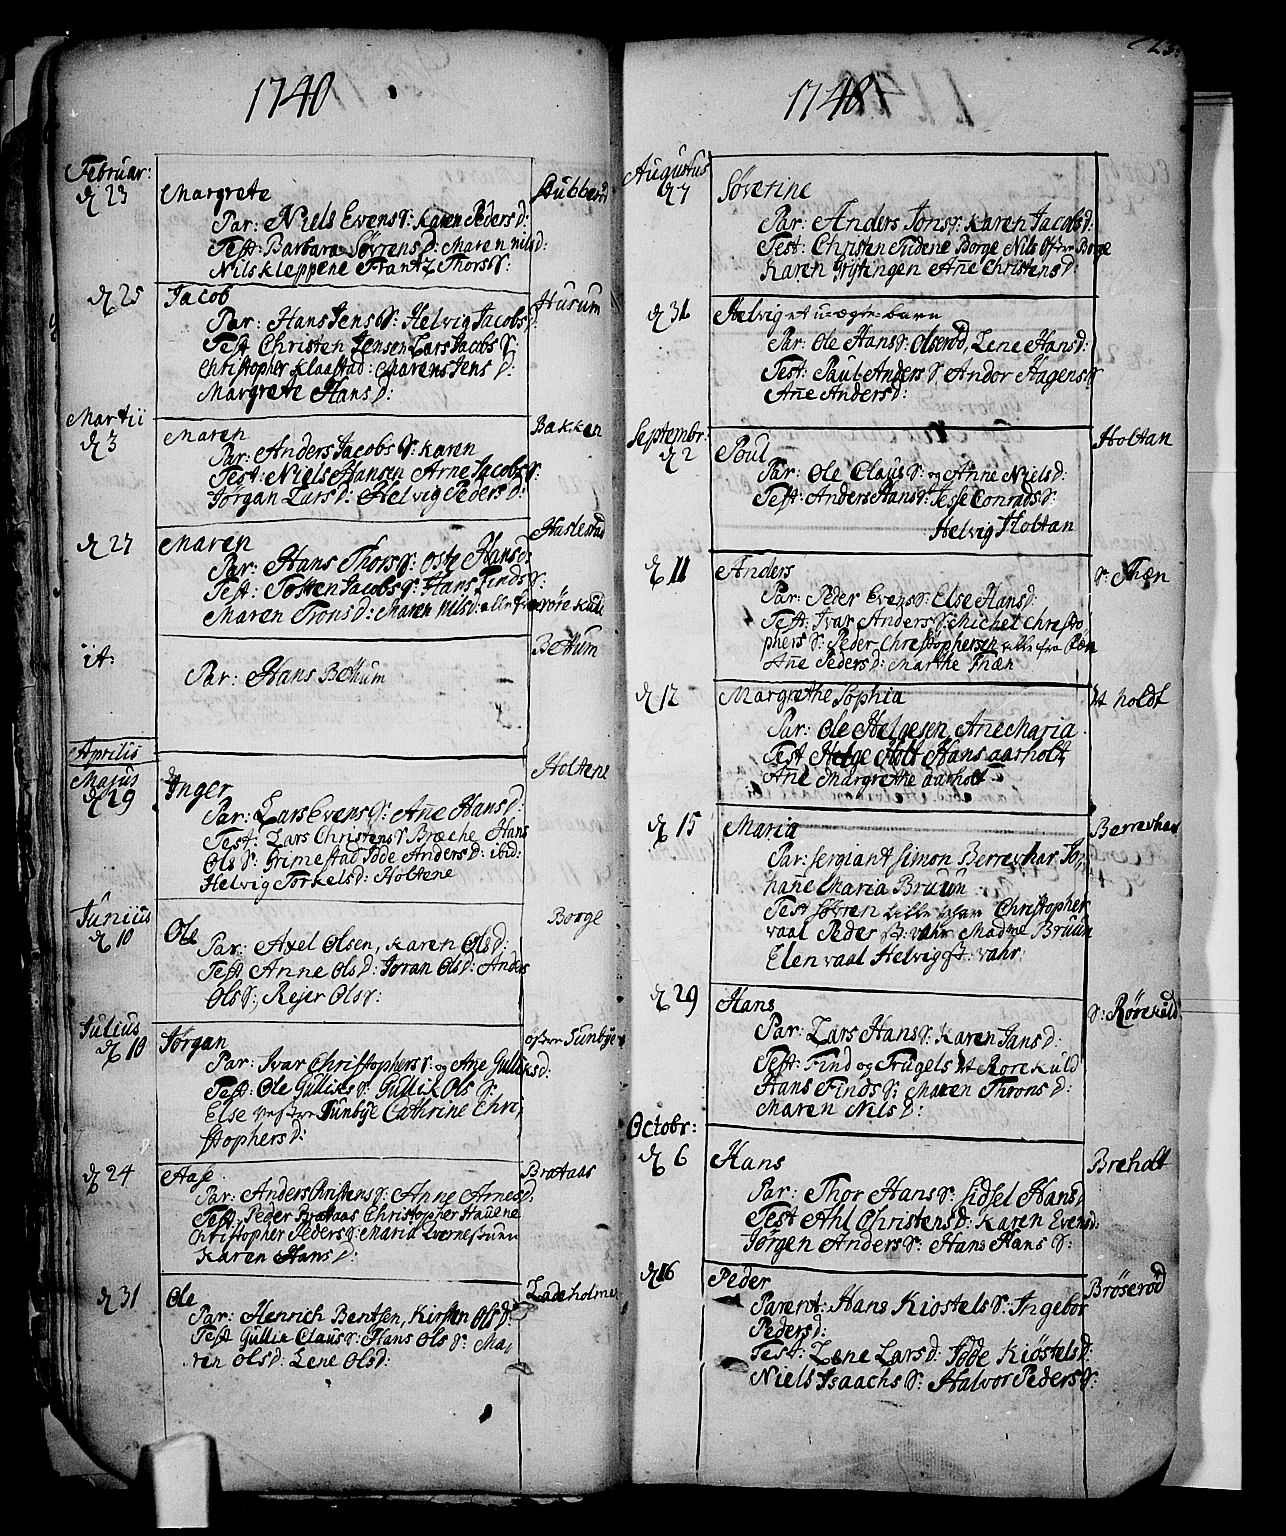 1740
Februar:
d 23 Margrete Bubberd
Par: Niels Evens S: Karen Peders d:
Test: Barbara Søvrens d: Maren nils d:
Nils Kleppene Frantz Thors S:
d 25 Jacob Husum
Par: Hans Jens S: Helvig Jacobs d:
Test Christen Jensen Lars Jacobs S:
Christopher Klaastad: Maren Jens d:
Margrete Hans d:
Martii
d 3 Maren Bakken
Par: Anders Jacobs S: Karen
Test: Niels Hansen Arne Jacobs S:
Jørgan Lars d: Helvig Peders d:
d 27 Maren Haslestad
Par: Hans Thors S: Oste Hans d:
Test: Tosten Jacobs S: Hans Finds S:
Maren Trons d: Maren Nils d: alle fra rørekuld
it: Bettum
Par: Hans Bettum
Aprilis
Majus
d 29 Inger Holtene
Par: Lars Evens S: Anne Hans d:
Test: Lars Christens S Bræche Hans
Ols S: Grimestad Tode Anders d: ibid:
Helvig Torkels d: Holtene
Junius
d 10 Ole Borge
Par: Axel Olsen, Karen Ols d:
Test Anne Ols d: Joran Ols d: Anders
Ols S:, Rejer Ols S:
Julius
d 10 Jørgan Ofver Sunbye
Par: Ivar Christophers S: og Ane Gulliks d:
Test: Ole Gulliks S: Gullik Ols S:
Else vestre Sunbye Cathrine Chri-
stophers d:
d 24 Aase Brataas
Par: Anders Christens S: Anne Arnes d:
Test: Peder Brataas Christopher Hauene
Christopher Peders S: Maria Lvernestunn
Karen Hans d:
d 31 Ole Ladeholmen
Par: Henrich Bentsen, Kirsten Ols d:
Test Gullic Claus S: Hans Ols S: Ma-
ren Ols d: Lene Ols d:
23.
1740
Augustus
d 7 Søverine
Par: Anders Jons S: Karen Jacobs d:
Test: Christen Nedene Borge Nils Ofver Borge
Karen Grytingen Anne Christens d:
d 31 Helvig et uægte barn
Par: Ole Hans S: Olserød, Lene Hans d:
Test: Paul Anders S: Andor Aagens S
Anne Anders d:
Septembr:
d 2 Poul Holtan
Par: Ole Claus S: og Anne Niels d:
Test: Anders Hans S: Jesse Conrads S:
Helvig Holtan
d 11 Anders S: Thæn
Par: Peder Evens S: Else Hans d:
Test: Ivar Anders S: Michel Christo
phers S: Peder Christophersen alle fra
Anne Peders d: Marthe Thæn
d 12 Margrethe Sophia Holdt
Par: Ole Helgesen, Anne Maria
Test Helge Holt Hans aarholt,
Ane Margrethe aarholt
d 15 Maria Berrevhar
Par: Sergiant Simon Berrevhar Jo-
hane Maria Bruun
Test Søvren Lille vhar Christopher
vaal Peder St: vahr Madme Bruun
Elen vaal Helvig St: vahr:
d 29 Hans S: Rørekuld
Par: Lars Hans S: Karen Jans d:
Test: Find og Trugels Rørekuld
Hans Finds S: Maren Throns d:
Maren Nils d:
Octobr:
d 6 Hans Breholt
Par: Thor Hans S: Sidsel Hans d
Test Ahl Christens d: Karen Evens d:
Jørgen Anders S: Hans Hans S:
d 16 Peder Brøserød
Parent: Hans Kiostels S: Ingebor
Peders d:
Test: Lene Lars d: Tode Kiøstels d:
Niels Isaachs S: Halvor Peders S: